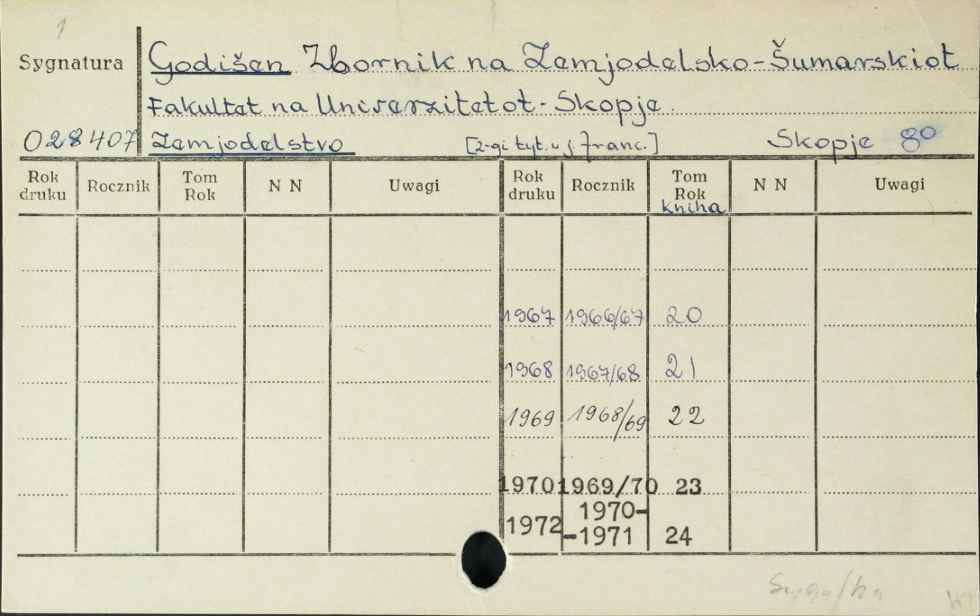 1
Sygnatura Godišen Zbornik na Zemjodelsko-Šumarskiot
Fakultet na Univerzitetot-Skopje.
028407 Zemjodelstvo [2-gi tyt. w j. franc.] Skopje 8º
Rok druku Rocznik Tom Rok N N Uwagi Rok druku Rocznik Tom Rok Kniha N N Uwagi
1967 1966/67 20
1968 1967/68 21
1969 1968/69 22
1970 1969/70 23
1972 1970-
-1971 24